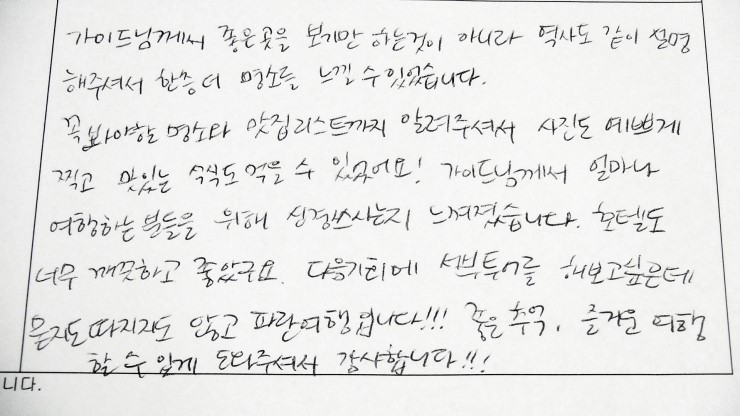 가이드님께서 좋은곳을 보기만 하는것이 아니라 역사도 같이 설명
해주셔서 한층 더 명소를 느낄 수 있었습니다.
꼭 봐야할 명소와 맛집리스트까지 알려주셔서 사진도 예쁘게
찍고 맛있는 음식도 먹을 수 있었어요! 가이드님께서 얼마나
여행하는분들을 위해 신경쓰시는지 느껴졌습니다. 호텔도
너무 깨끗하고 좋았구요. 다음기회에 세부투어를 해보고싶은데
묻지도따지지도 않고 파란여행입니다!!! 좋은 추억, 즐거운 여행
할 수 있게 도와주셔서 감사합니다!!!
니다.